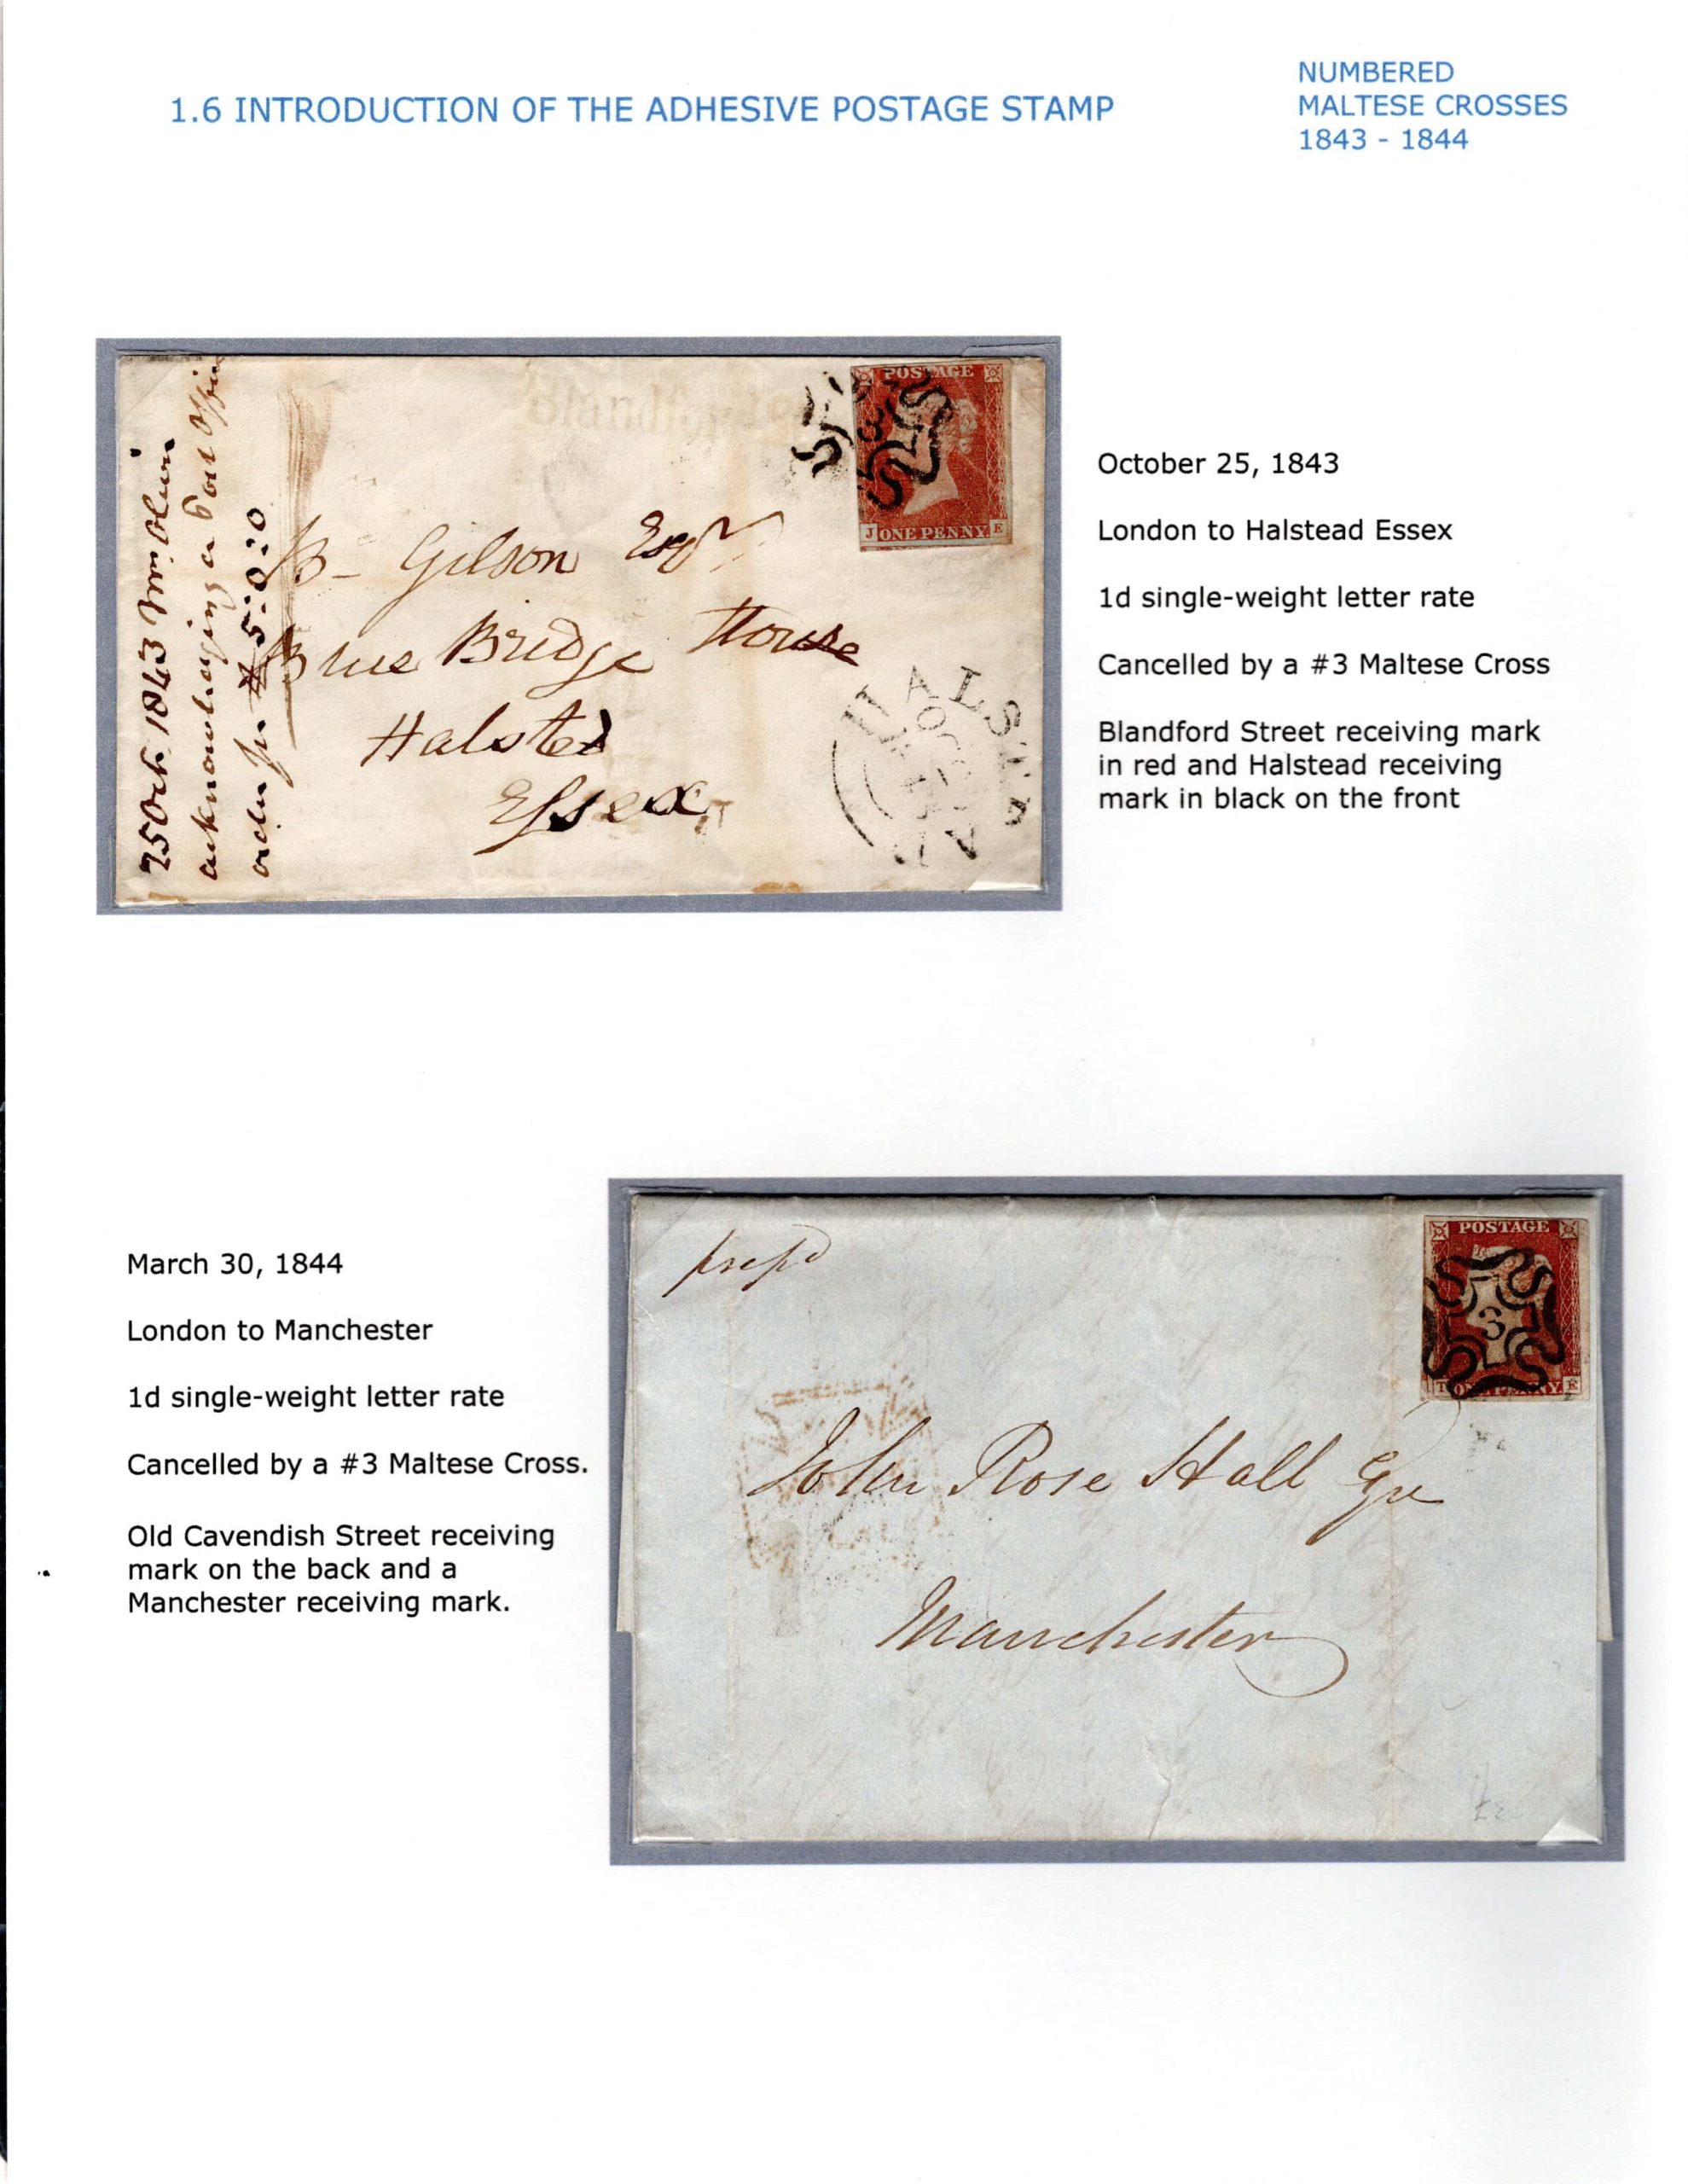 1.6 INTRODUCTION OF THE ADHESIVE POSTAGE STAMP
NUMBERED
MALTESE CROSSES
1843 - 1844
25 Oct. 1843 Mr.
acknowledging a Post Office
order for £5:0:0
Blandford
POSTAGE
3
J ONE PENNY. E
Gilson Esqr
Blue Bridge House
Halsted
Essex
HALSTEA
October 25, 1843
London to Halstead Essex
1d single-weight letter rate
Cancelled by a #3 Maltese Cross
Blandford Street receiving mark
in red and Halstead receiving
mark in black on the front
March 30, 1844
London to Manchester
1d single-weight letter rate
Cancelled by a #3 Maltese Cross.
Old Cavendish Street receiving
mark on the back and a
Manchester receiving mark.
prepd
POSTAGE
3
T ONE PENNY E
John Rose Hall Esqre
Manchester